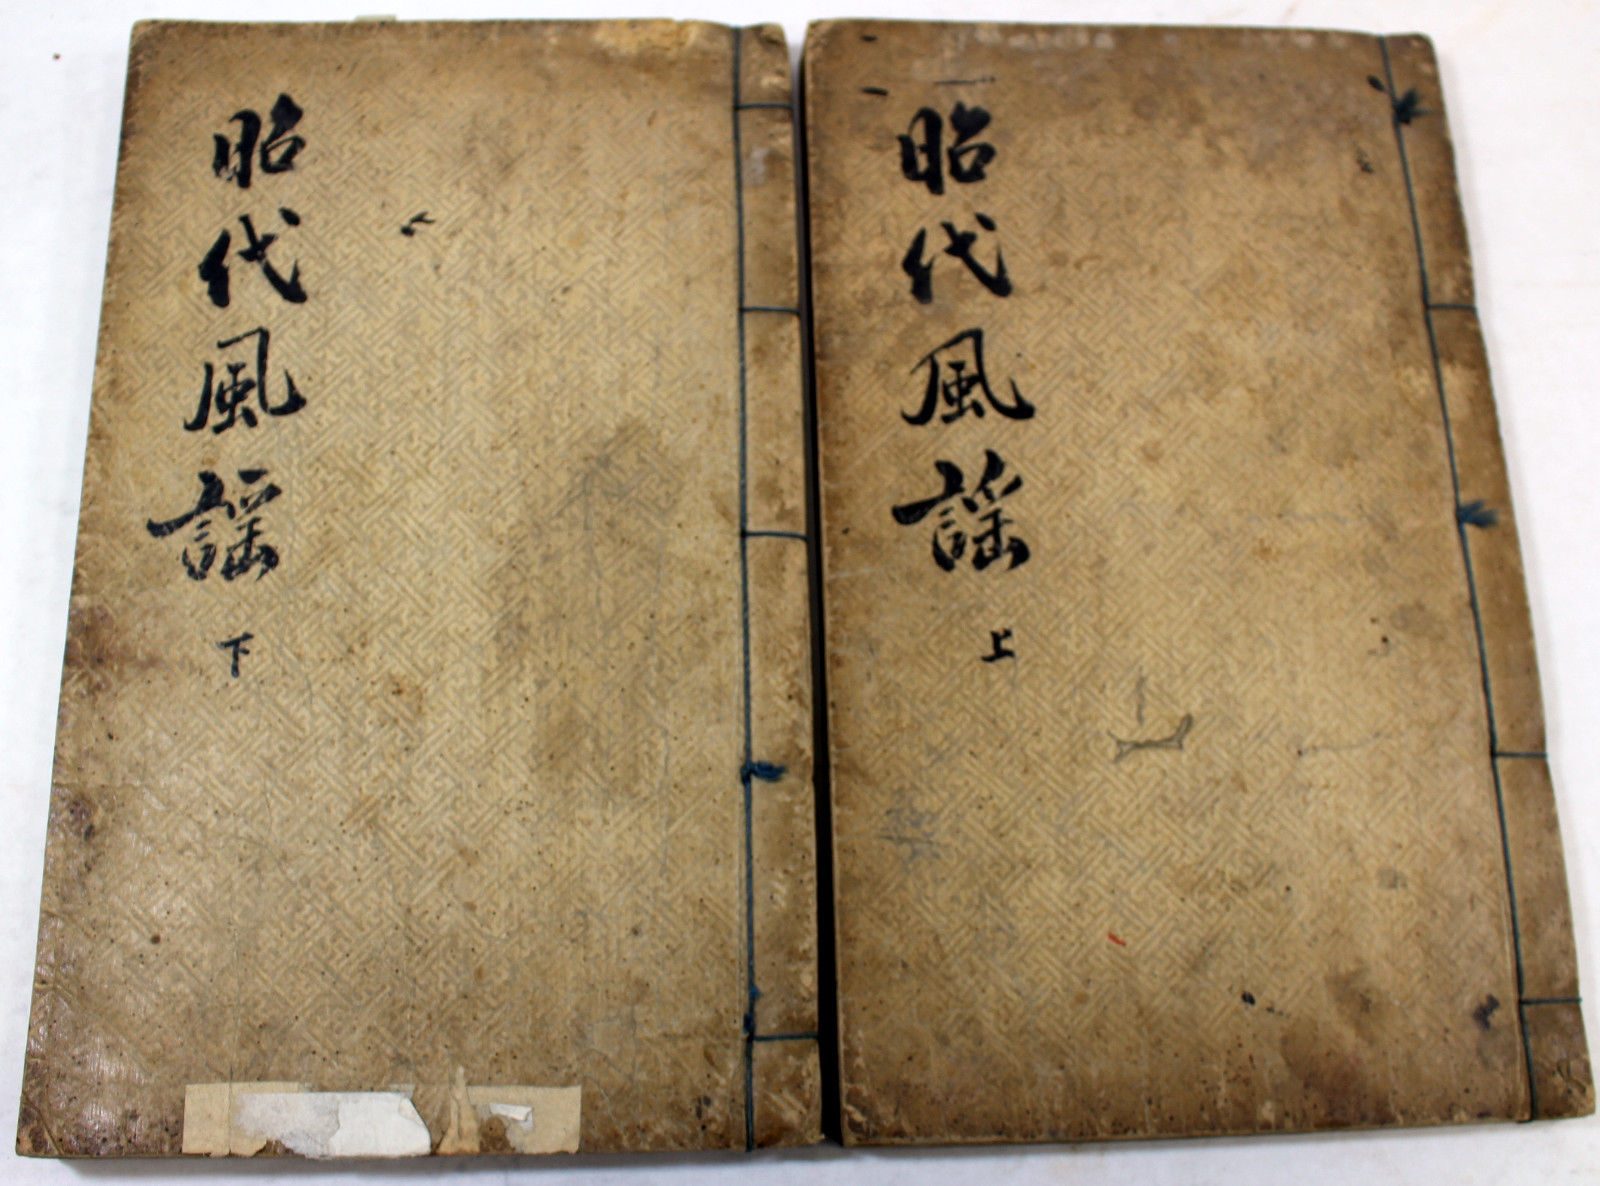 昭代風謠 上
昭代風謠 下